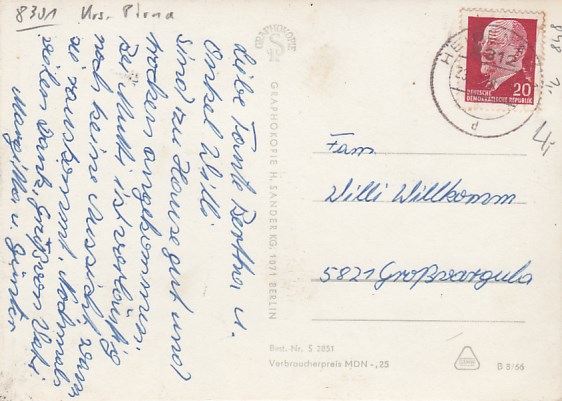 8301 Krs. Pirna
Liebe Tante Bertha u.
Onkel Willi
sind zu Hause gut und
trocken angekommen.
Bei Mutti ist vorläufig
noch keine Aussicht, wann
sie rauskommt. Nochmals
vielen Dank, Grüße von Vati
u. Günter
GRAPHOKOPIE
GRAPHOKOPIE H. SANDER KG, 1071 BERLIN
20
DEUTSCHE
DEMOKRATISCHE REPUBLIK
Fam.
Willi Willkomm
5821 Großvargula
Best.-Nr. S 2851
Verbraucherpreis MDN -,25
B 8/66